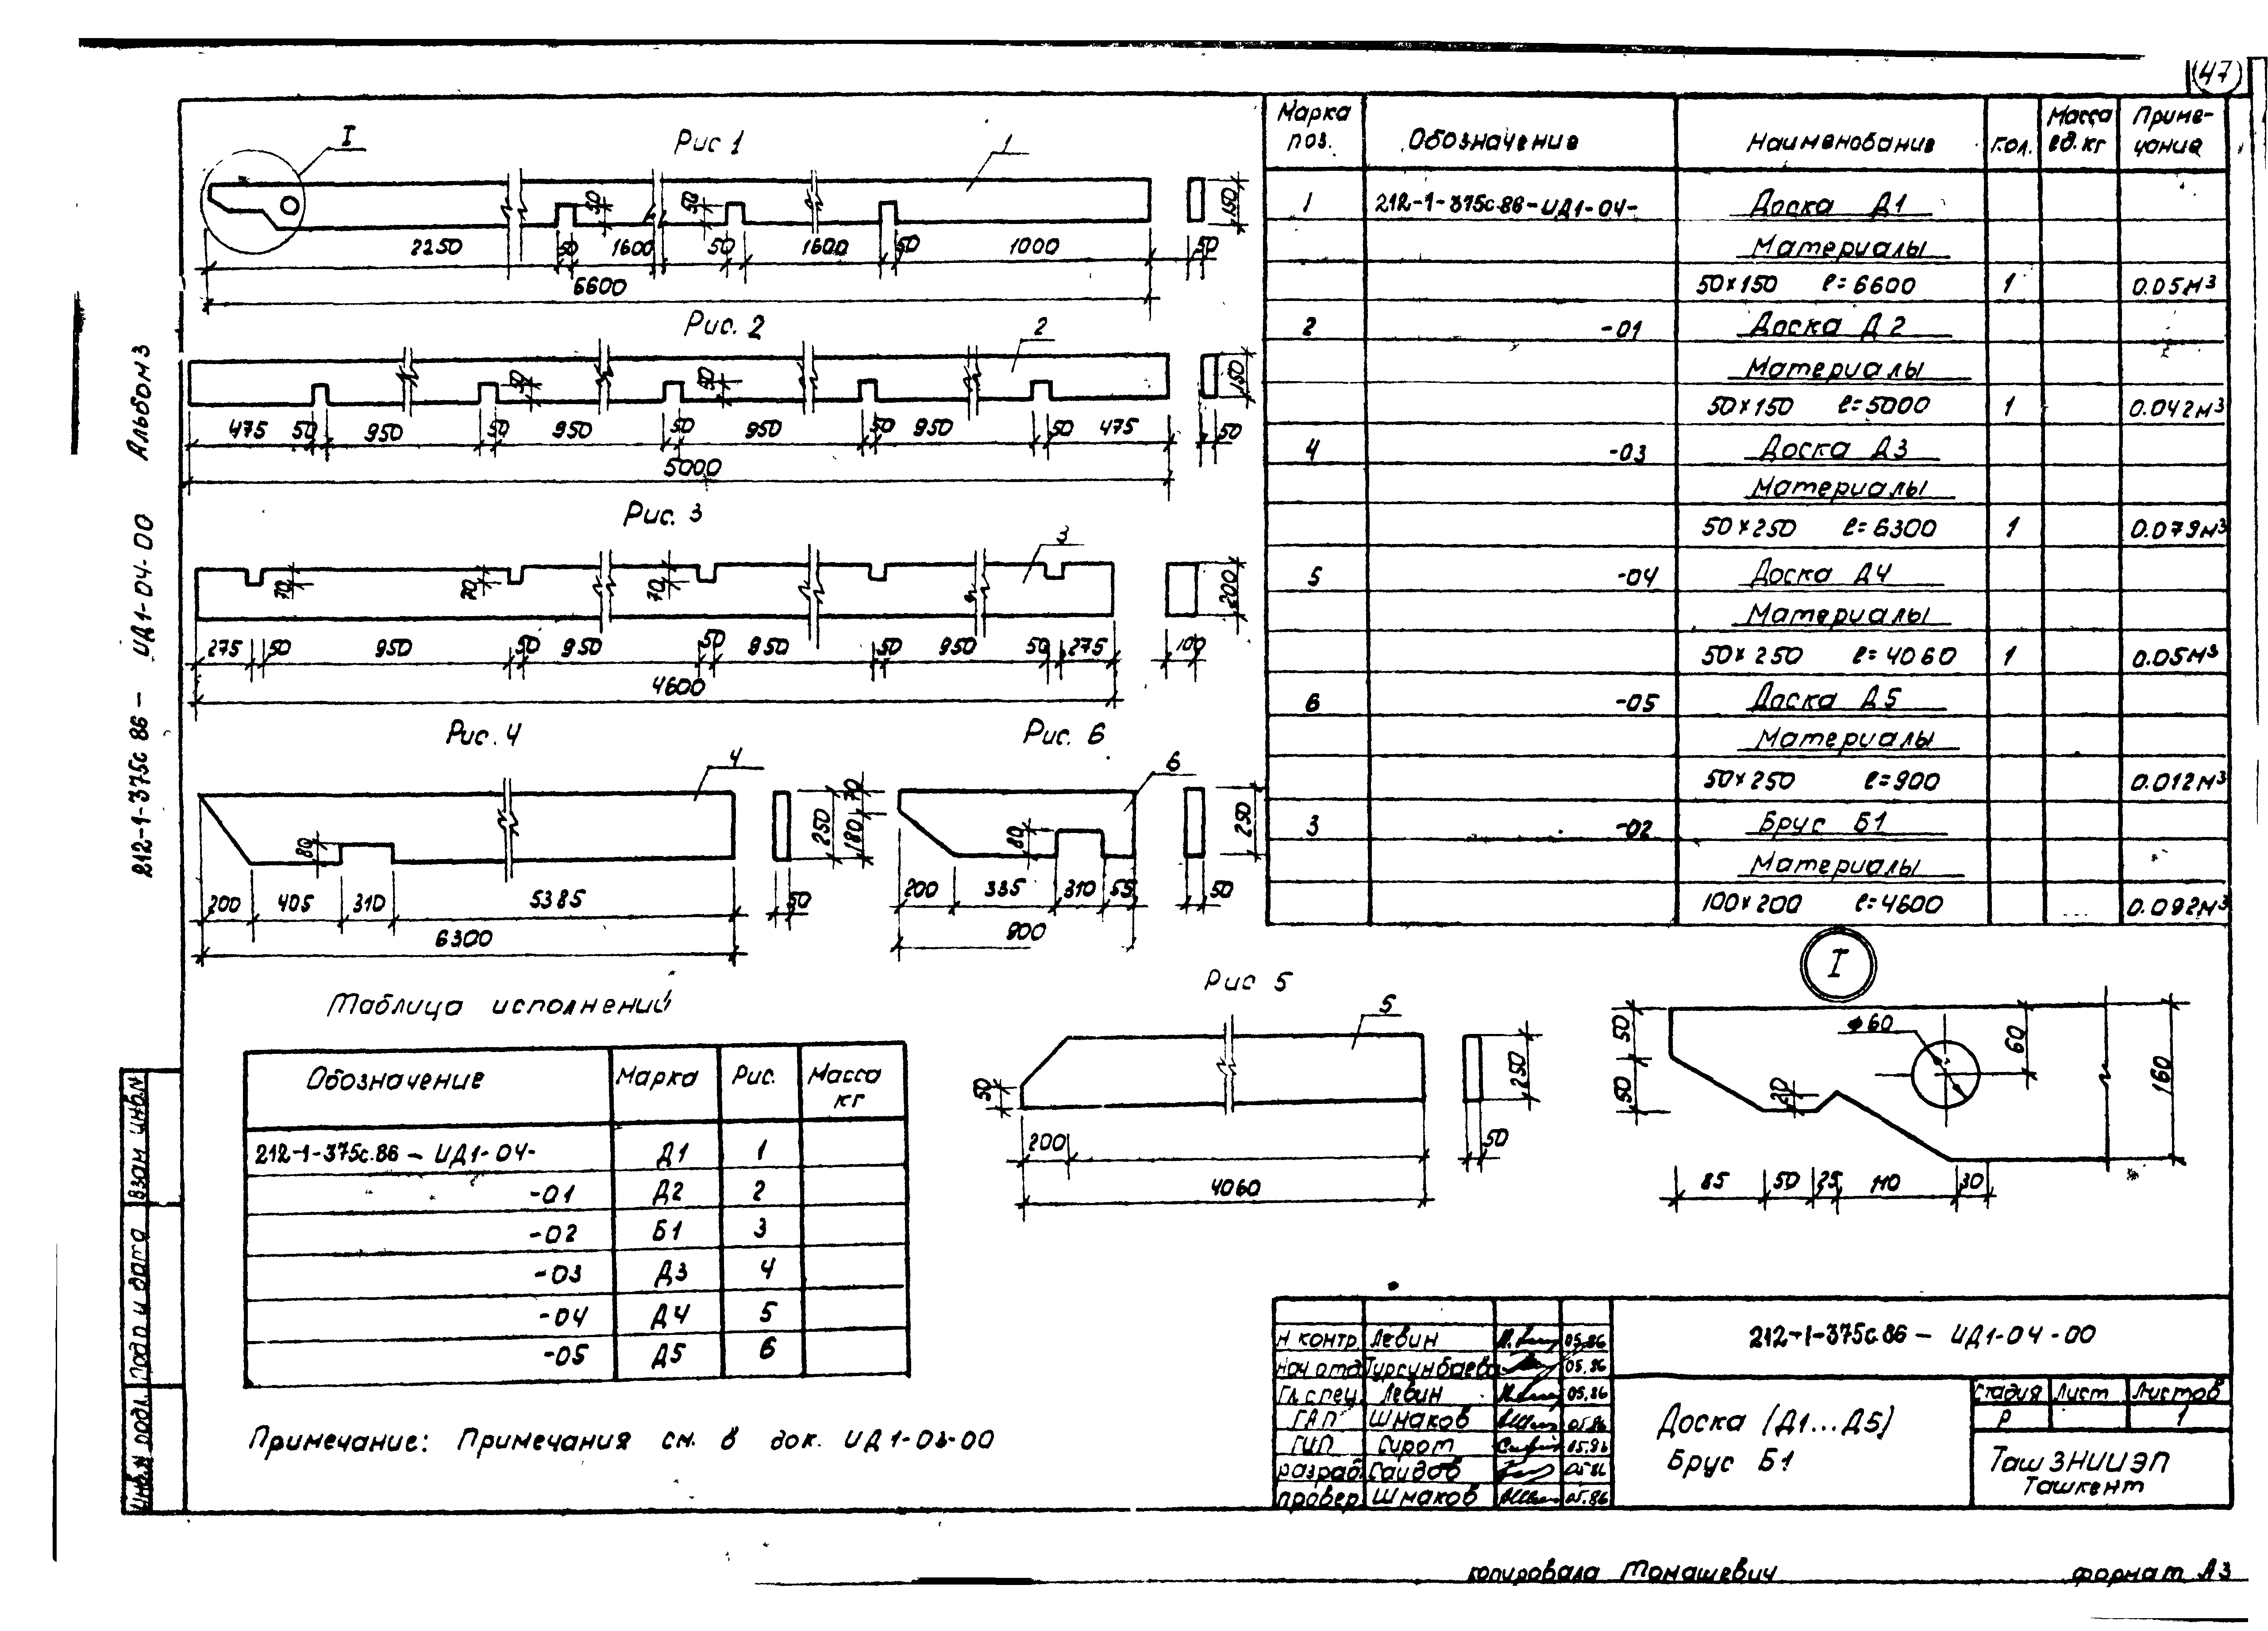 47
212-1-375с 86 - ИД1-04-00 Альбом 3
Рис 1
I
1
50
50
150
2250 50 1600 50 1600 50 1000 50
6600
Рис. 2
2
50
50
150
475 50 950 50 950 50 950 50 950 50 475 50
5000
Рис. 3
3
70
70
70
200
275 50 950 50 950 50 950 50 950 50 275 100
4600
Рис. 4
4
80
250
200 405 310 5385 50
6300
Рис. 6
6
70
180
80
250
200 335 310 55 50
900
Рис 5
5
50
250
200 50
4060
I
50
50
20
ϕ60
60
160
85 50 25 110 30
Марка поз. Обозначение Наименование Кол. Масса ед. кг Приме-чание
1 212-1-375с.86-ИД1-04- Доска Д1
Материалы
50×150 ℓ=6600 1 0.05м³
2 -01 Доска Д2
Материалы
50×150 ℓ=5000 1 0.042м³
4 -03 Доска Д3
Материалы
50×250 ℓ=6300 1 0.079м³
5 -04 Доска Д4
Материалы
50×250 ℓ=4060 1 0.05м³
6 -05 Доска Д5
Материалы
50×250 ℓ=900 0.012м³
3 -02 Брус Б1
Материалы
100×200 ℓ=4600 0.092м³
Таблица исполнений
Обозначение Марка Рис. Масса кг
212-1-375с.86 - ИД1-04- Д1 1
-01 Д2 2
-02 Б1 3
-03 Д3 4
-04 Д4 5
-05 Д5 6
Примечание: Примечания см. в док. ИД1-03-00
Взам инв.№
Подп и дата
Инв.№ подл.
Н контр. Левин 05.86
Нач отд Турсунбаева 05.86
Гл. спец. Левин 05.86
ГАП Шмаков 05.86
ГИП Сирот 05.86
разраб. Саидов 05.86
провер. Шмаков 05.86
212-1-375с.86 - ИД1-04-00
Доска (Д1...Д5)
Брус Б1
Стадия Лист Листов
Р 1
ТашЗНИИЭП
Ташкент
копировала Томашевич
формат А3